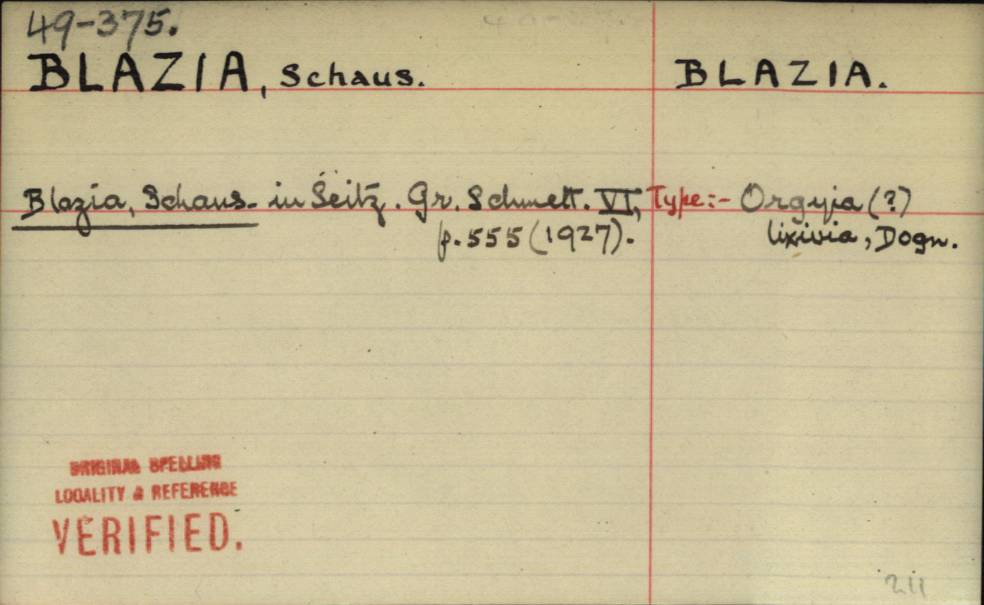 49-375.
BLAZIA, Schaus.
BLAZIA.
Blazia, Schaus - in Seitz. Gr. Schmett. VI,
p.555 (1927).
Type:- Orgyia (?)
lixivia, Dogn.
ORIGINAL SPELLING
LOCALITY & REFERENCE
VERIFIED.
211